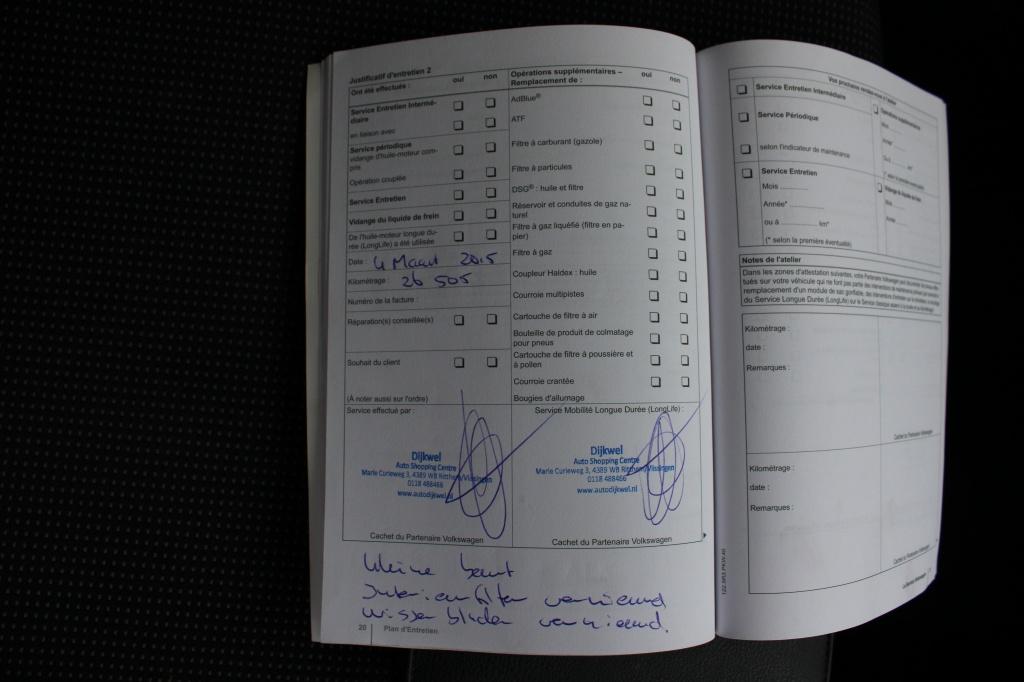 Justificatif d'entretien 2
Ont été effectués : oui non
Service Entretien Intermé-
diaire
en liaison avec
Service périodique
vidange d'huile-moteur com-
pris
Opération couplée
Service Entretien
Vidange du liquide de frein
De l'huile-moteur longue du-
rée (LongLife) a été utilisée
Date : 4 Maart 2015
Kilométrage : 26 505
Numéro de la facture :
Réparation(s) conseillée(s)
Souhait du client
(À noter aussi sur l'ordre)
Opérations supplémentaires –
Remplacement de : oui non
AdBlue®
ATF
Filtre à carburant (gazole)
Filtre à particules
DSG® : huile et filtre
Réservoir et conduites de gaz na-
turel
Filtre à gaz liquéfié (filtre en pa-
pier)
Filtre à gaz
Coupleur Haldex : huile
Courroie multipistes
Cartouche de filtre à air
Bouteille de produit de colmatage
pour pneus
Cartouche de filtre à poussière et
à pollen
Courroie crantée
Bougies d'allumage
Service effectué par :
Dijkwel
Auto Shopping Centre
Marie Curieweg 3, 4389 WB Ritthem/Vlissingen
0118 488466
www.autodijkwel.nl
Cachet du Partenaire Volkswagen
Service Mobilité Longue Durée (LongLife) :
Dijkwel
Auto Shopping Centre
Marie Curieweg 3, 4389 WB Ritthem/Vlissingen
0118 488466
www.autodijkwel.nl
Cachet du Partenaire Volkswagen
kleine beurt
Interieurfilter vernieuwd
wisserbladen vernieuwd.
20 Plan d'Entretien
Vos prochains rendez-vous à l'atelier
Service Entretien Intermédiaire
Service Périodique
selon l'indicateur de maintenance
Service Entretien
Mois ..........
Année* ..........
ou à .......... km*
(* selon la première éventualité)
Opérations supplémentaires
Vidange du liquide de frein
Notes de l'atelier
Dans les zones d'attestation suivantes, votre Partenaire Volkswagen
Kilométrage :
date :
Remarques :
Cachet du Partenaire Volkswagen
Kilométrage :
date :
Remarques :
Cachet du Partenaire Volkswagen